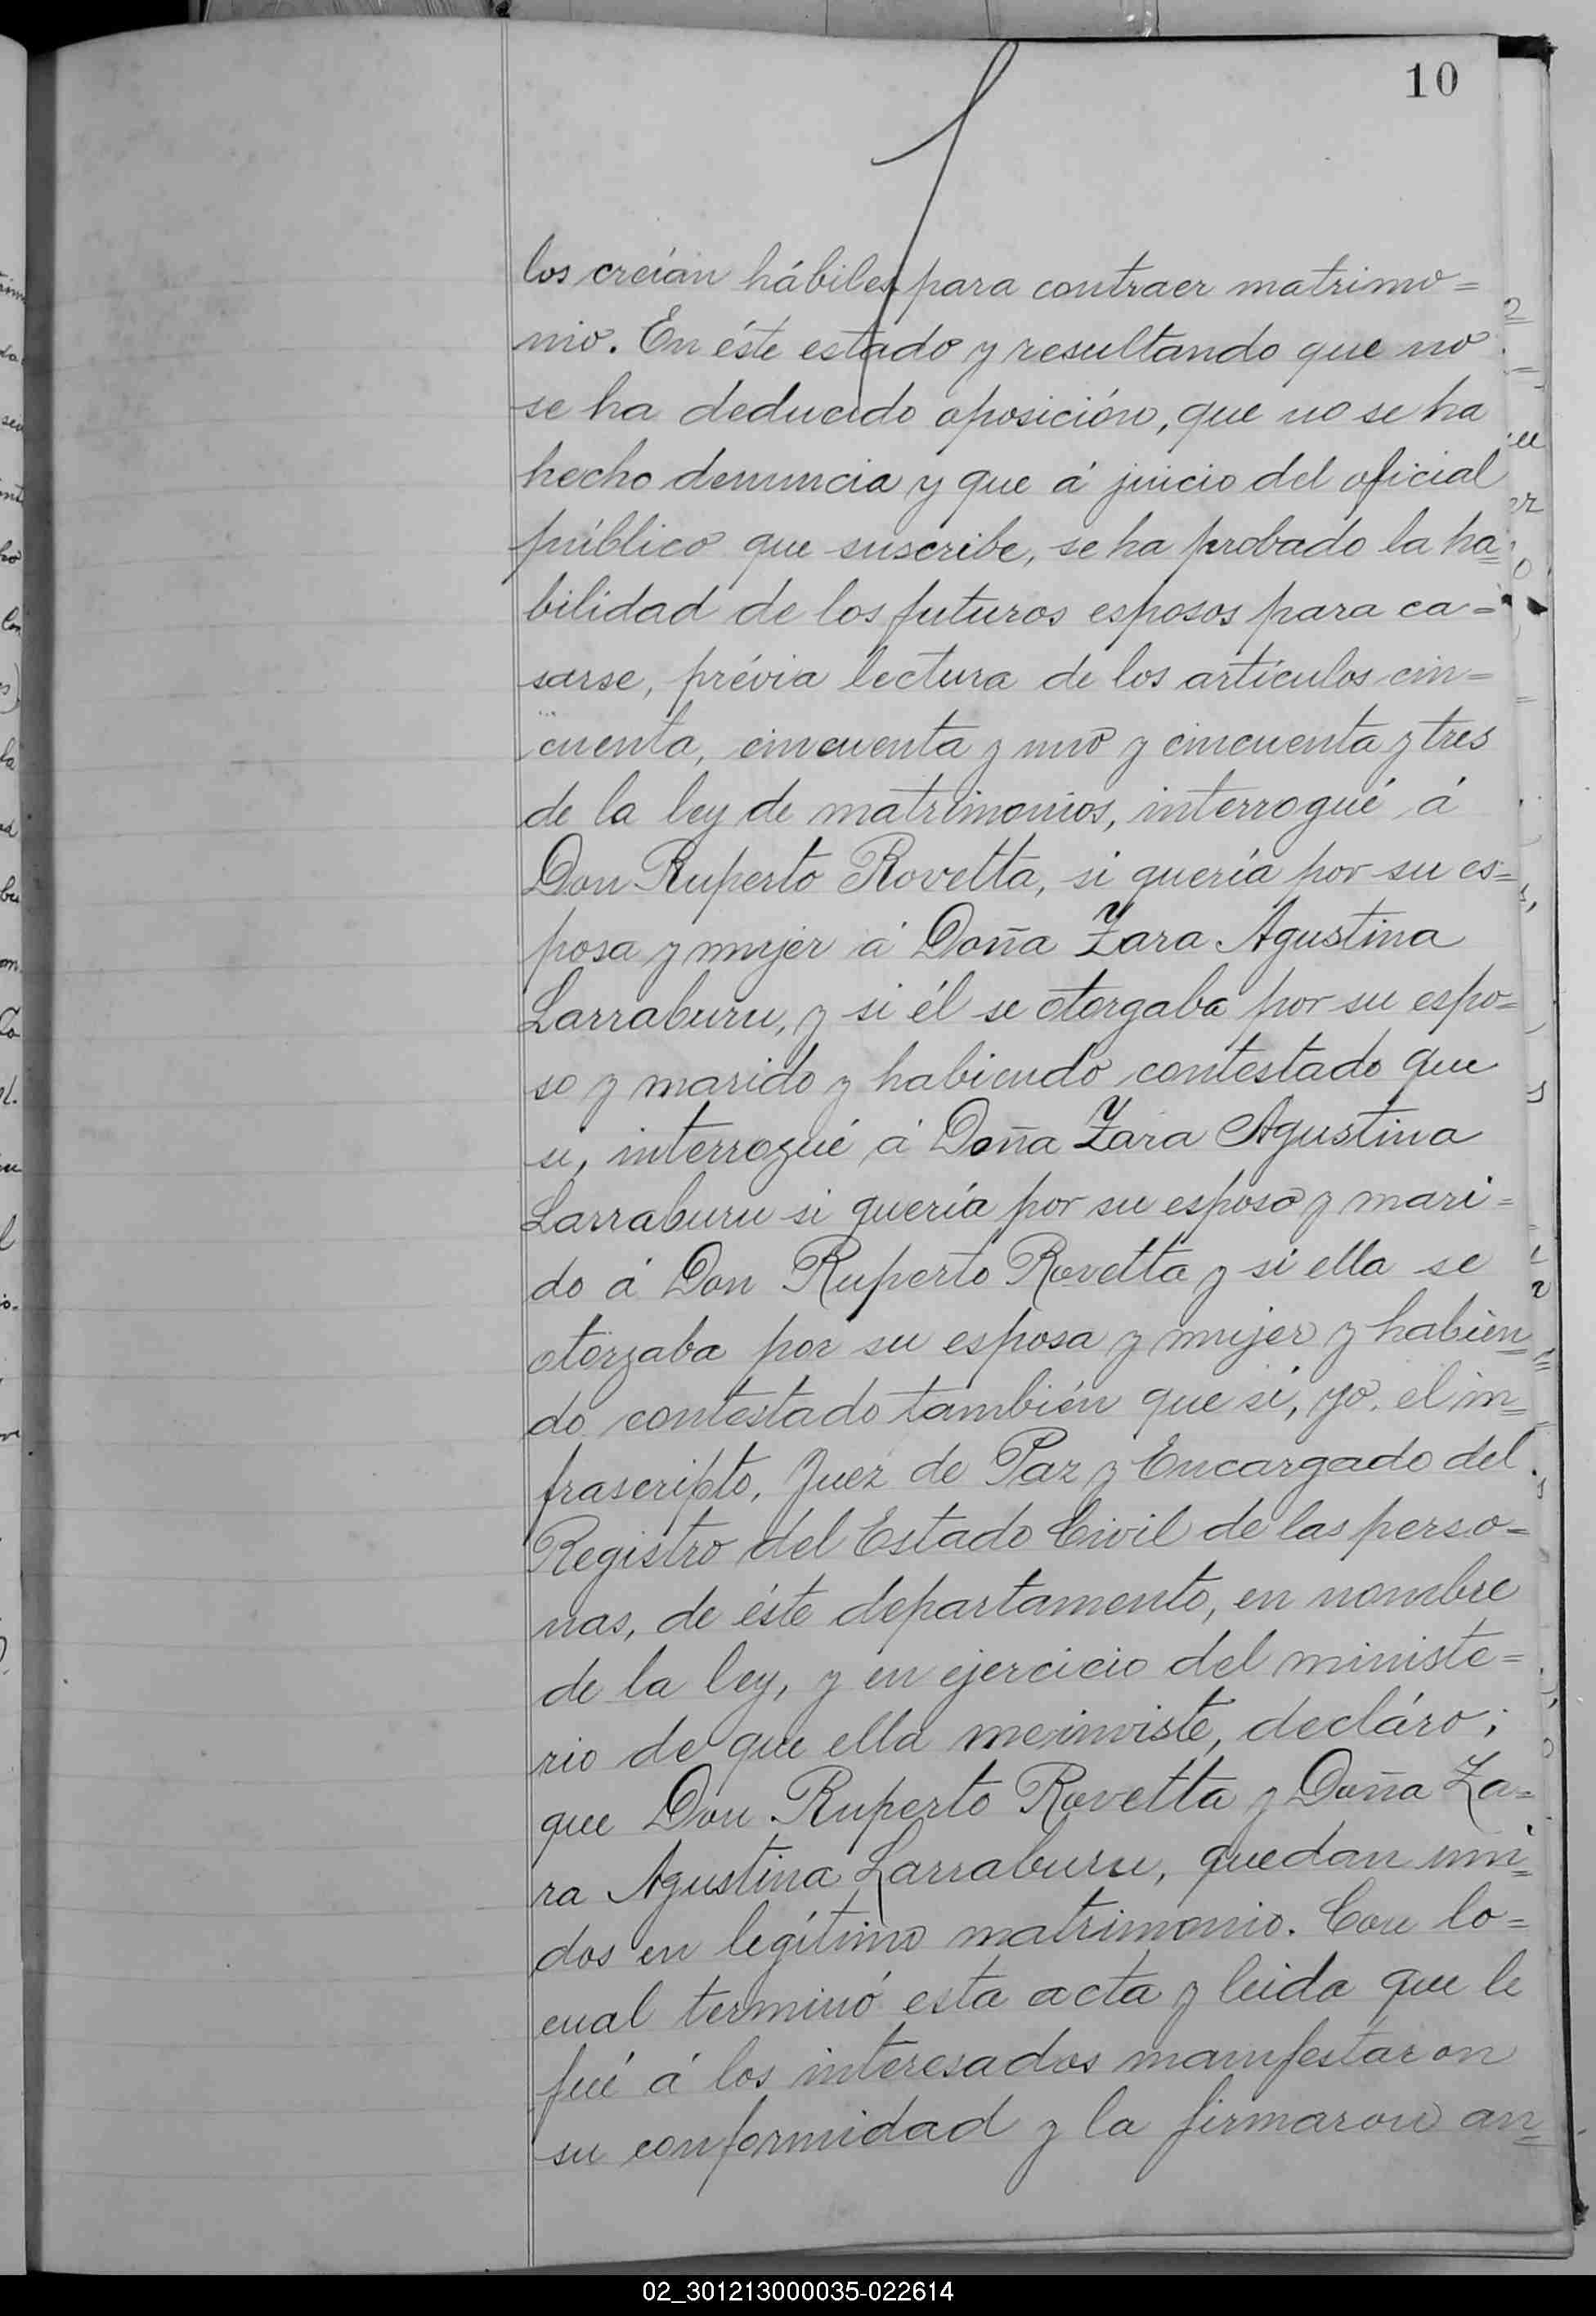 10
los creían hábiles para contraer matrimo=
nio. En éste estado y resultando que no
se ha deducido oposición, que no se ha
hecho denuncia y que á juicio del oficial
público que suscribe, se ha probado la ha=
bilidad de los futuros esposos para ca=
sarse, prévia lectura de los artículos cin=
cuenta, cincuenta y uno y cincuenta y tres
de la ley de matrimonios, interrogué á
Don Ruperto Rovetta, si quería por su es=
posa y mujer á Doña Zara Agustina
Larraburu, y si él se otorgaba por su espo=
so y marido y habiendo contestado que
si, interrogué á Doña Zara Agustina
Larraburu si quería por su esposo y mari=
do á Don Ruperto Rovetta y si ella se
otorgaba por su esposa y mujer y habien=
do contestado también que si, yo, el in=
frascripto, Juez de Paz y Encargado del
Registro del Estado Civil de las perso=
nas, de éste departamento, en nombre
de la ley, y en ejercicio del ministe=
rio de que ella me inviste, decláro;
que Don Ruperto Rovetta y Doña Za=
ra Agustina Larraburu, quedan uni=
dos en legítimo matrimonio. Con lo=
cual terminó esta acta y leida que le
fué á los interesados manifestaron
su conformidad y la firmaron an=
02_301213000035-022614